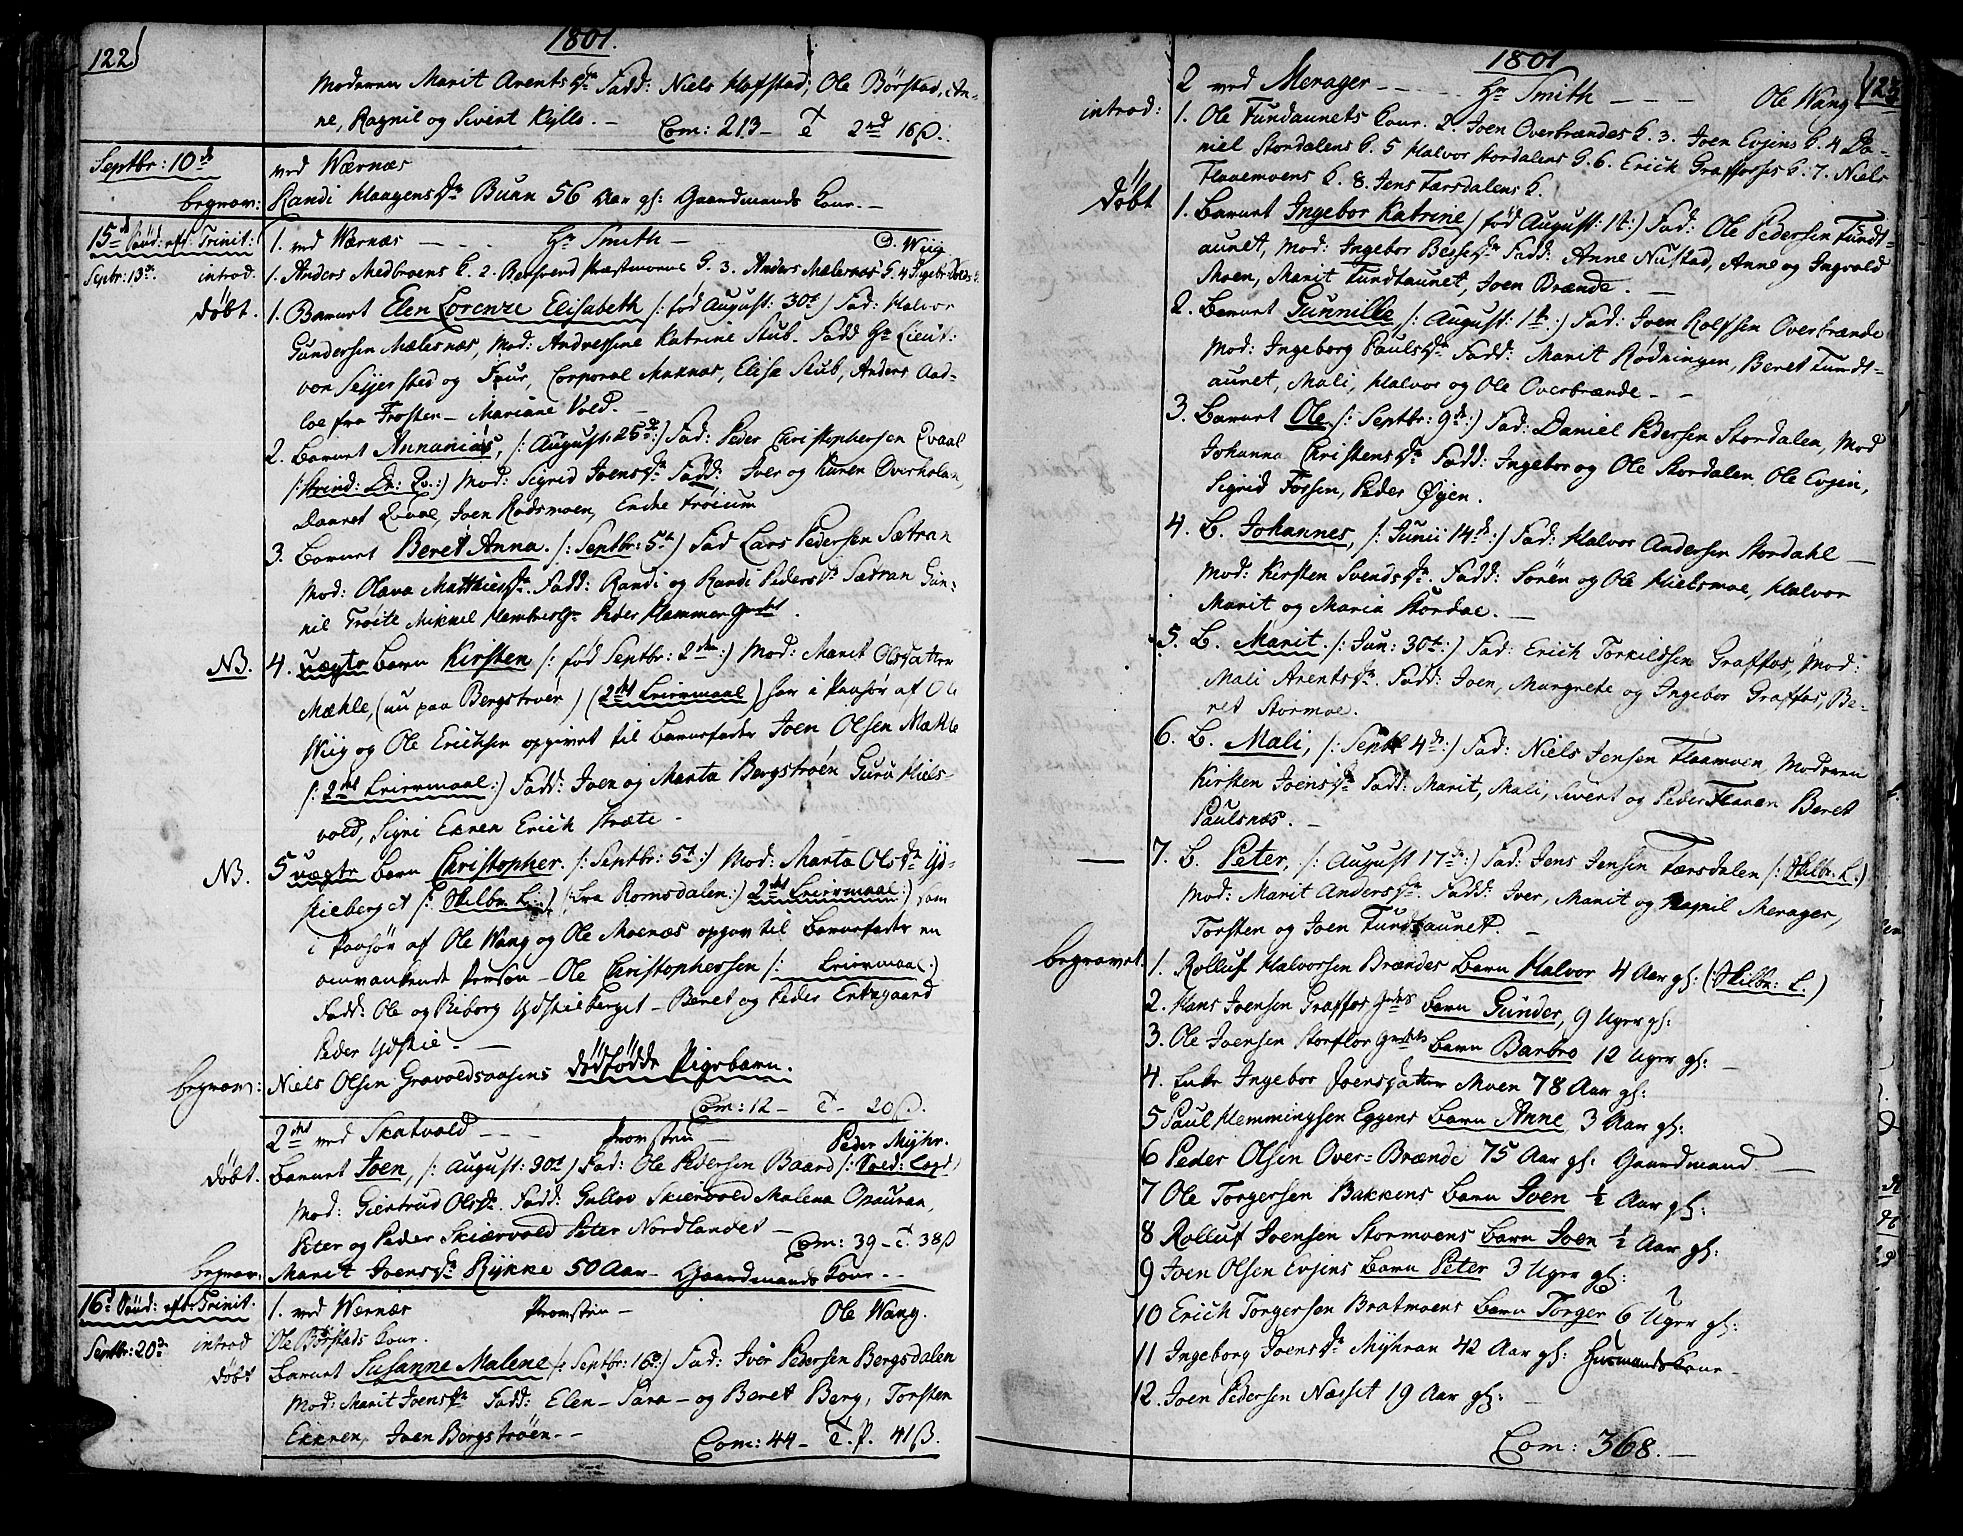 122
1801.
Moderen Marit Arentsdr Fadd: Niels Hofstad; Ole Börstad, An-
ne, Ragnil og Sivert Kyllo. — Com: 213 — T 2rd 16ß.
Septbr: 10de ved Wærnæs
begrav: Randi Haagensdr Buan 56 Aar gl: Gaardmands Konr. —
15de Sönd: eft: Trinit: 1. ved Wærnæs — — Hr Smith — O. Wiig
Septbr: 13de introd: 1. Anders Medbroens K. 2. Præstmoens K. 3. Anders Mælesnæs K. 4
döbt. 1. Barnet Elen Lorenze Elisabeth /: föd August: 30te) Fad: Halvor
Gundersen Mælesnæs, Mod: Andressine Katrine Stub. Fadd Hr Lieut:
von Sejersted og Frue, Corporal Maknas, Elise Stub, Anders Aad-
loe fra Frosten — Mariane Vold. —
2. Barnet Annanias, /: August: 25de:) Fad: Peder Christophersen Qvaal
/: Strind: Dr: Qv.:) Mod: Sigrid Joensdr Fadd: Iver og Karen Overholan,
Daaret Qvaal, Joen Rodsmoen, Endre Tröium
3. Barnet Beret Anna. /: Septbr: 5te) Fad Lars Pedersen Sætran
Mod: Olava Matthiesdr. Fadd: Randi og Randi Pedersdr Sætran Gun-
nil Tröite Mikkel Hembresgr Peder Hammer
NB. 4. uægte Barn Kirsten /: föd Septbr: 2den:) Mod: Marit Olsdatter
Mæhle, (nu paa Bergstroen) (2det Leiermaal) har i Paahör af Ole
Wiig og Ole Erichsen opgivet til Barnefader Joen Olsen Mæhle
/: 2det Leiermaal:) Fadd: Joen og Marta Bergströen Guru Hiels-
vold, Sigri Ekren Erich Stræte. —
NB. 5 uægte Barn Christopher. /: Septbr: 5te:) Mod: Marta Olsdr Yd-
stieberget /: Skilbr. L.:) (:fra Romsdalen:) 2det Leiermaal:) som
i Paahör af Ole Wang og Ole Moenæs opgav til Barnefader en
omvankende Person — Ole Christophersen /: Leiermaal:)
Fadd: Ole og Riborg Ydstieberget — Beret og Peder Enkegaard
Peder Ydstie. —
begrav: Niels Olsen Gravoldsaasens dödfödde Pigebarn.
Com: 12 — T — 20ß.
2det ved Skatvold — — — Provsten — Peder Myhr.
döbt. Barnet Joen, /: August: 30te) Fad: Ole Pedersen Baard
Mod: Giertrud Olsdr. Fadd: Gullov Skiervold Malena Opauran,
Peter og Peder Skiærvold Peter Nordlandet —
Com: 39 — T. 38ß
begrav: Marit Joensdr Rykke 50 Aar — Gaardmands Konr. — —
16de Sönd: eft: Trinit. 1. ved Wærnæs Provsten — Ole Wang.
Septbr: 20de introd Ole Börstads Konr.
döbt Barnet Susanne Malene /: Septbr: 16de) Fad: Iver Pedersen Bergsdalen
Mod: Marit Joensdr Fadd: Elen — Sara — og Beret Berg, Torsten
Ekkren, Joen Bergströen. — —
Com: 44 — T. p. 41ß.
1801
123
2 ved Merager — — — Hr Smith — — — Ole Wang
introd: 1. Ole Fundaunets Konr. 2. Joen Overbrændes K. 3. Joen Evjens K. 4 Da-
niel Stordalens K. 5 Halvor Stordalens K. 6. Erich Graffosses K. 7. Niels
Flaaemoens K. 8. Jens Færsdalens K.
döbt 1. Barnet Ingebor Katrine /: föd August: 1te:) Fad: Ole Pedersen Fundt-
aunet, Mod: Ingebor Bessesdr Fadd: Anne Nustad, Anne og Ingvold
Moen, Marit Fundtaunet, Joen Brænde. —
2. Barnet Gunnille /: August: 1te:) Fad: Joen Rolfsen Overbrænde
Mod: Ingeborg Paulsdr Fadd: Marit Rodningen, Beret Fundt-
aunet, Mali, Halvor og Ole Overbrænde — —
3. Barnet Ole /: Septbr: 9de:) Fad: Daniel Pedersen Stordalen, Mod
Johanna Christensdr Fadd: Ingebor og Ole Stordalen Ole Evjen,
Sigrid Fossen, Peder Øyen.
4. B. Johannes, /: Junii 14de:) Fad: Halvor Andersen Stordahl —
Mod: Kirsten Svendsdr. Fadd: Sören og Ole Hielsmoe, Halvor
Marit og Maria Stordal. —
5. B. Marit. /: Jun: 30te:) Fad: Erich Torkildsen Graffos, Mod:
Mali Arentsdr. Fadd: Joen, Margrete og Ingebor Graffos, Be-
ret Stormoe.
6. B. Mali, /: Septb 4de:) Fad: Niels Jensen Flaamoen Moderen
Kirsten Joensdr Fadd: Marit, Mali, Sivert og Peder Flaaen Beret
Paulsnæs. —
7. B. Peter, /: August 17de:) Fad: Jens Jensen Færsdalen /: Skilbr. L.)
Mod: Marit Andersdr. Fadd: Iver, Marit og Ragnil Merager,
Torsten og Joen Fundtaunet. —
begravet. 1. Rolluf Halvorsen Brændes Barn Halvor 4 Aar gl: (: Skilbr: L.)
2. Hans Joensen Graffos Barn Gunder, 9 Uger gl:
3. Ole Joensen Storflor Barn Barbro 12 Uger gl: —
4. Enke Ingebor Joensdatter Moen 78 Aar gl:
5 Paul Hemmingsen Eggens Barn Anne 3 Aar gl:
6 Peder Olsen Over-Brænde 75 Aar gl: Gaardmand —
7 Ole Torgersen Bakkens Barn Joen ½ Aar gl:
8 Rolluf Joensen Stormoens Barn Joen ½ Aar gl:
9 Joen Olsen Evjens Barn Peter 3 Uger gl:
10 Erich Torgersen Bratmoens Barn Torger 6 Uger gl:
11 Ingeborg Joensdr Myhran 42 Aar gl: Husmands Konr —
12. Joen Pedersen Næsset 19 Aar gl: —
Com: 368. —